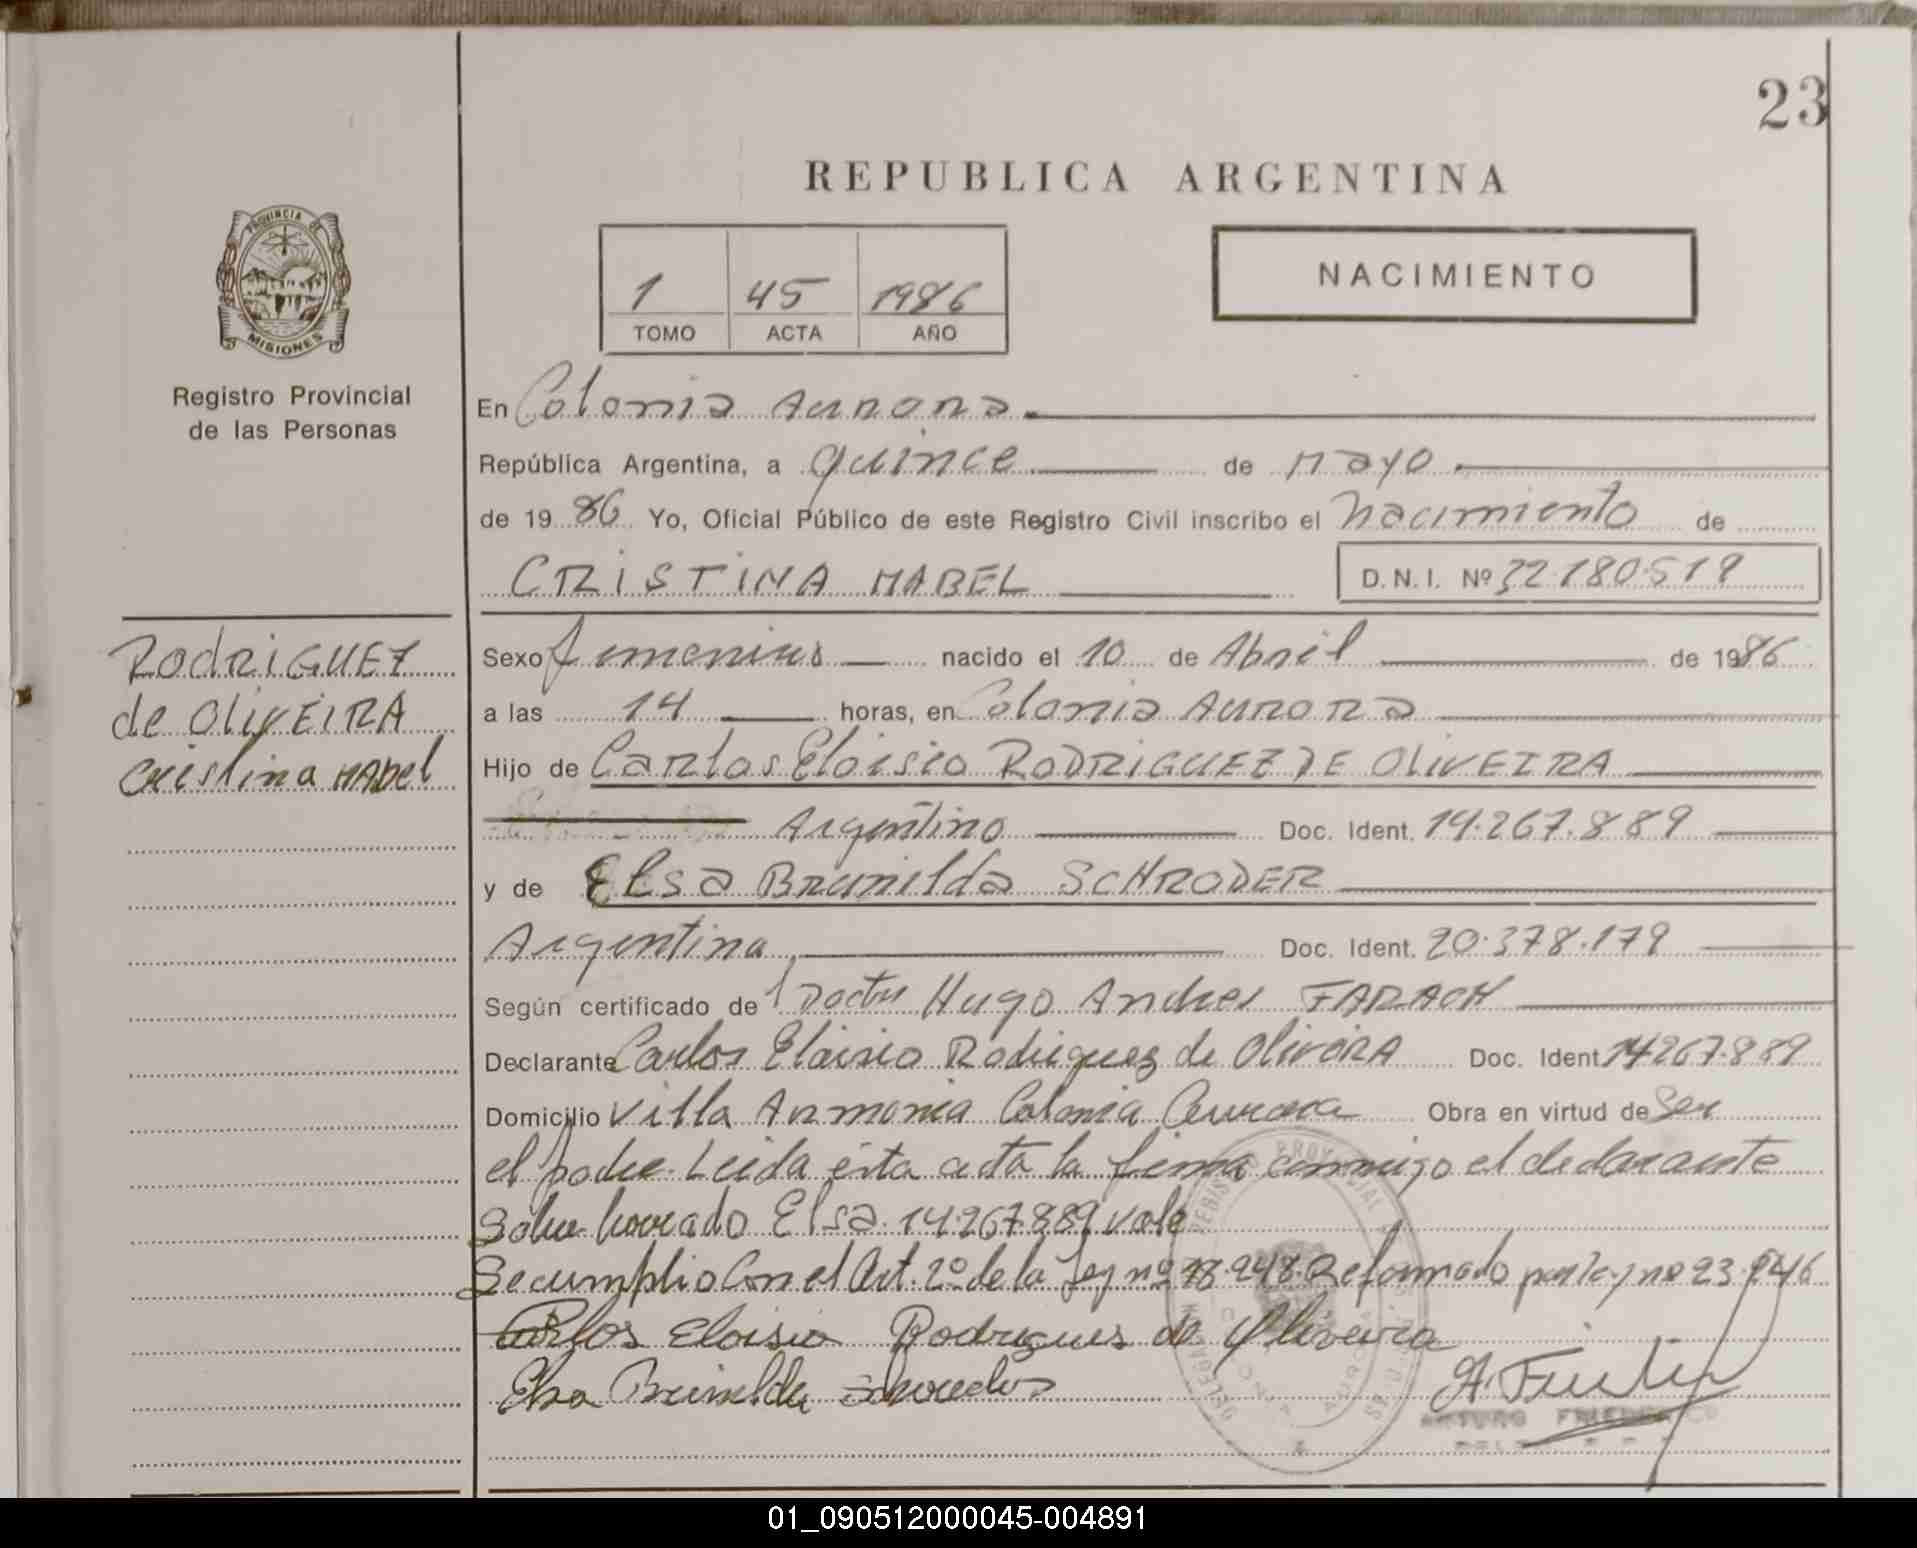 23
REPUBLICA ARGENTINA
PROVINCIA DE
MISIONES
Registro Provincial
de las Personas
1 45 1986
TOMO ACTA AÑO
NACIMIENTO
En Colonia Aurora
República Argentina, a quince de Mayo
de 1986 Yo, Oficial Público de este Registro Civil inscribo el Nacimiento de
CRISTINA MABEL D.N.I. Nº 32.180.519
RODRIGUEZ
de OLIVEIRA
Cristina MABel
Sexo femenino nacido el 10 de Abril de 1986
a las 14 horas, en Colonia Aurora
Hijo de Carlos Eloisio RODRIGUEZ DE OLIVEIRA
Argentino Doc. Ident. 14.267.889
y de Elsa Brunilda SCHRODER
Argentina Doc. Ident. 20.378.179
Según certificado del Doctor Hugo Andres FARACH
Declarante Carlos Eloisio Rodriguez de OliveirA Doc. Ident. 14267.889
Domicilio Villa Armonia Colonia Aurora Obra en virtud de Ser
el padre. Leida ésta acta la firma conmigo el declarante
Sobre borrado Elsa. 14.267.889 vale
Se cumplio Con el Art. 2º de la Ley nº 18.248. Reformado por ley nº 23.
Carlos Eloisio Rodrigues de Oliveira
Elsa Brunilda
ARTURO
01_090512000045-004891